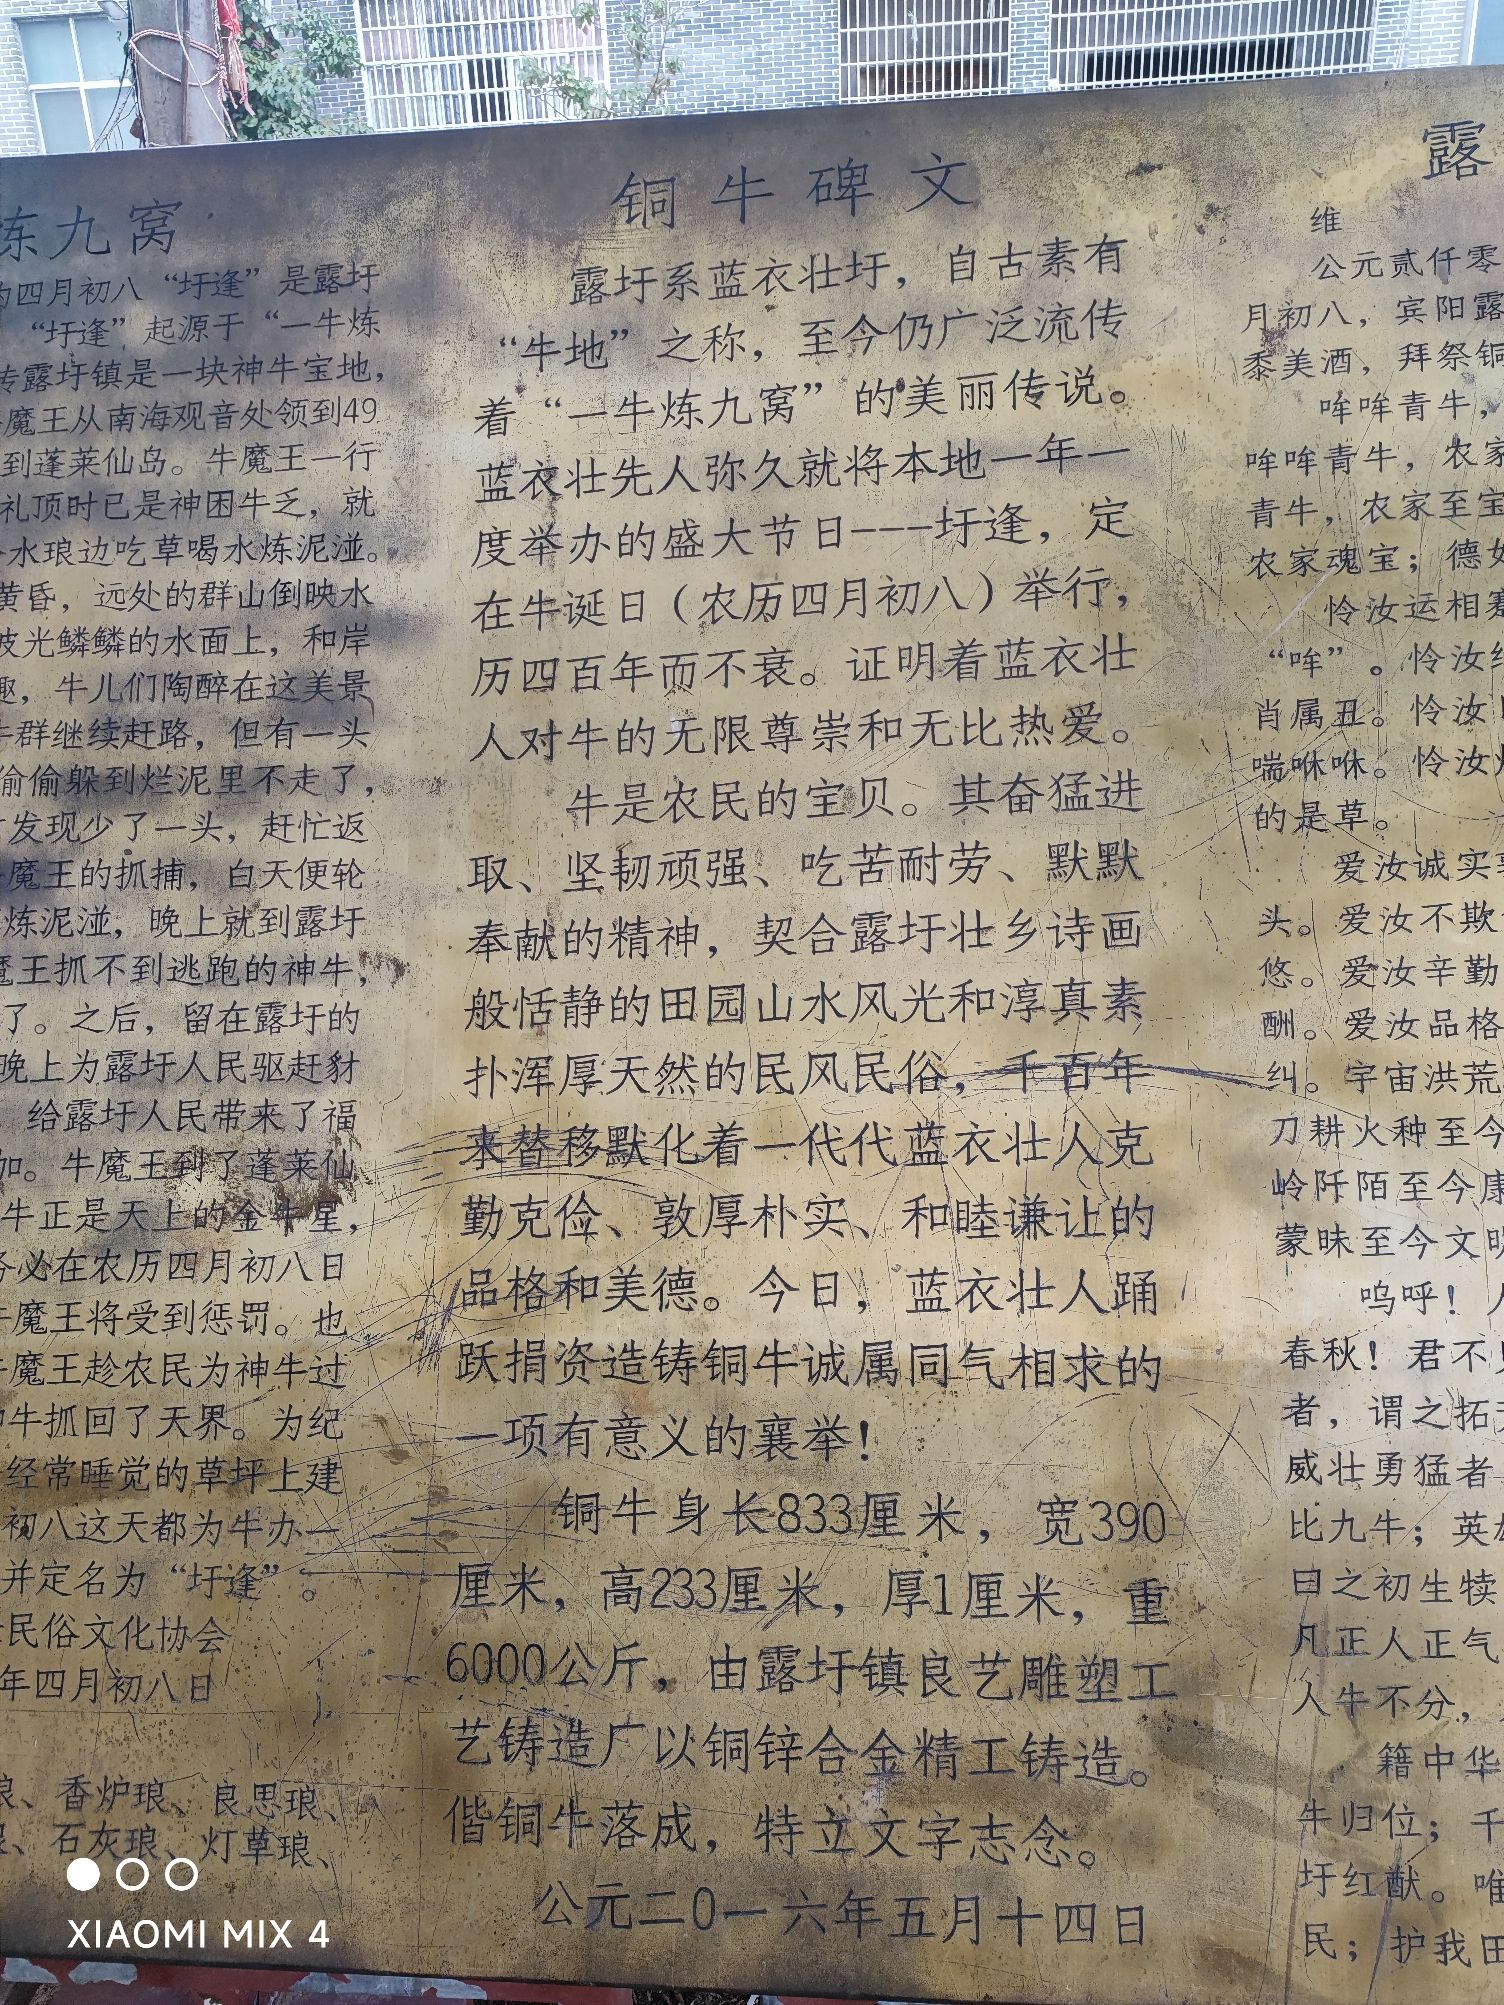 炼九窝
的四月初八“圩逢”是露圩
“圩逢”起源于“一牛炼
传露圩镇是一块神牛宝地，
魔王从南海观音处领到49
到蓬莱仙岛。牛魔王一行
礼顶时已是神困牛乏，就
水琅边吃草喝水炼泥湴。
黄昏，远处的群山倒映水
波光鳞鳞的水面上，和岸
趣，牛儿们陶醉在这美景
牛群继续赶路，但有一头
偷偷躲到烂泥里不走了，
发现少了一头，赶忙返
魔王的抓捕，白天便轮
炼泥湴，晚上就到露圩
魔王抓不到逃跑的神牛，
了。之后，留在露圩的
晚上为露圩人民驱赶豺
给露圩人民带来了福
加。牛魔王到了蓬莱仙
牛正是天上的金牛星，
务必在农历四月初八日
牛魔王将受到惩罚。也
牛魔王趁农民为神牛过
神牛抓回了天界。为纪
经常睡觉的草坪上建
初八这天都为牛办一
并定名为“圩逢”。
民俗文化协会
年四月初八日
琅、香炉琅、良思琅、
石灰琅、灯草琅、
铜牛碑文
露圩系蓝衣壮圩，自古素有
“牛地”之称，至今仍广泛流传
着“一牛炼九窝”的美丽传说。
蓝衣壮先人弥久就将本地一年一
度举办的盛大节日---圩逢，定
在牛诞日（农历四月初八）举行，
历四百年而不衰。证明着蓝衣壮
人对牛的无限尊崇和无比热爱。
牛是农民的宝贝。其奋猛进
取、坚韧顽强、吃苦耐劳、默默
奉献的精神，契合露圩壮乡诗画
般恬静的田园山水风光和淳真素
扑浑厚天然的民风民俗，千百年
来替移默化着一代代蓝衣壮人克
勤克俭、敦厚朴实、和睦谦让的
品格和美德。今日，蓝衣壮人踊
跃捐资造铸铜牛诚属同气相求的
一项有意义的襄举！
铜牛身长833厘米，宽390
厘米，高233厘米，厚1厘米，重
6000公斤，由露圩镇良艺雕塑工
艺铸造厂以铜锌合金精工铸造。
偕铜牛落成，特立文字志念。
公元二0一六年五月十四日
露
维
公元贰仟零
月初八，宾阳露
黍美酒，拜祭铜
哞哞青牛，
哞哞青牛，农家
青牛，农家至宝
农家魂宝；德如
怜汝运相蹇
“哞”。怜汝终
肖属丑。怜汝
喘咻咻。怜汝
的是草。
爱汝诚实
头。爱汝不欺
悠。爱汝辛勤
酬。爱汝品格
纠。宇宙洪荒
刀耕火种至今
岭阡陌至今康
蒙昧至今文明
呜呼！人
春秋！君不见
者，谓之拓
威壮勇猛者
比九牛；英雄
曰之初生犊
凡正人正气
人牛不分，
籍中华
牛归位；千
圩红猷。唯
民；护我田
XIAOMI MIX 4